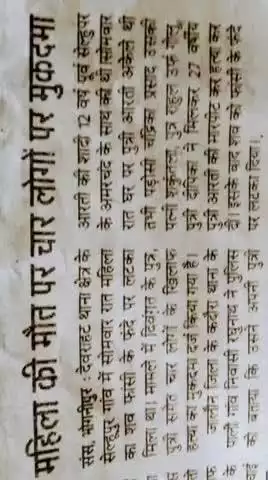 महिला की मौत पर चार लोगों पर मुकदमा
संस, भोगनीपुर : देवराहट थाना क्षेत्र के
सेल्हूपुर गांव में सोमवार रात महिला
का शव फांसी के फंदे पर लटका
मिला था। मामले में दिवंगत के पुत्र,
पुत्री समेत चार लोगों के खिलाफ
हत्या का मुकदमा दर्ज किया गया है।
जालौन जिला के कदौरा थाना के
पाली गांव निवासी रघुनाथ ने पुलिस
को बताया कि उसने अपनी पुत्री
आरती की शादी 12 वर्ष पूर्व सेल्हूपुर
के अमरचंद के साथ की थी। सोमवार
रात घर पर पुत्री आरती अकेले थी
तभी पड़ोसी चंद्रिका प्रसाद उसकी
पत्नी शकुंतला, पुत्र राहुल उर्फ गोलू
पुत्री दीपिका ने मिलकर 27 वर्षीय
पुत्री आरती की मारपीट कर हत्या कर
दी। इसके बाद शव को फांसी के फंदे
पर लटका दिया।